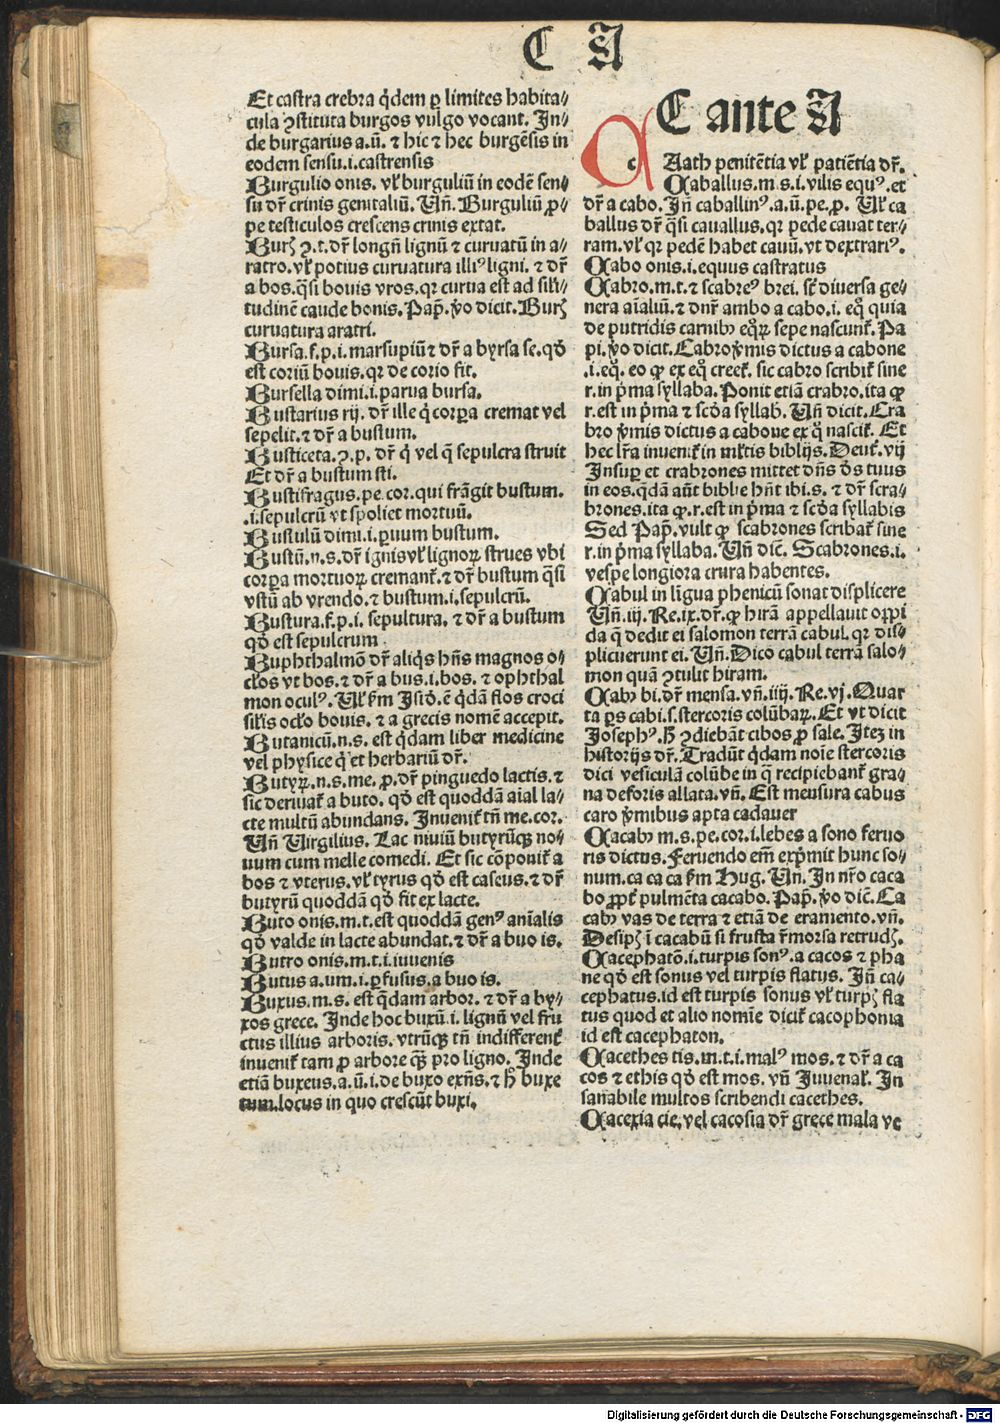 C A
Et castra crebra q̇dem ꝑ limites habita/
cula ꝯstituta burgos vulgo vocant. In/
de burgarius a.ū. ⁊ hic ⁊ hec burgēsis in
eodem sensu.i.castrensis
Burgulio onis. vł burguliū in eodē sen/
su dr̄ crinis genitaliū. Vn̄. Burguliū ꝓ/
pe testiculos crescens crinis extat.
Burꝫ ꝯ.t.dr̄ longū lignū ⁊ curuatū in a/
ratro.vł potius curuatura illiꝰ ligni. ⁊ dr̄
a bos.q̄si bouis vros.qr curua est ad sili/
tudinē caude bonis. Pap̄. v̊o dicit. Burꝫ
curuatura aratri.
Bursa.f.p.i. marsupiū ⁊ dr̄ a byrsa se.qđ
est coriū bouis.qr de corio fit.
Bursella dimi.i.parua bursa.
Bustarius rij. dr̄ ille q̇ corꝑa cremat vel
sepelit.⁊ dr̄ a bustum.
Busticeta.ꝯ.p. dr̄ q̇ vel q̄ sepulcra struit
Et dr̄ a bustum sti.
Bustifragus.pe.cor.qui frāgit bustum.
.i.sepulcrū vt spoliet mortuū.
Bustulū dimi.i.ꝑuum bustum.
Bustū.n.s.dr̄ ignis vł lignoꝝ strues vbi
corꝑa mortuoꝝ cremant̄.⁊ dr̄ bustum q̄si
vstū ab vrendo.⁊ bustum.i.sepulcrū.
Bustura.f.p.i. sepultura. ⁊ dr̄ a bustum
qđ est sepulcrum
Buphthalmō dr̄ aliq̇s hn̄s magnos o/
cłos vt bos.⁊ dr̄ a bus.i.bos.⁊ ophthal
mon oculꝰ. Vł ẜm Isiđ.ē q̇dā flos croci
silis ocło bouis.⁊ a grecis nomē accepit.
Butanicū.n.s. est q̇dam liber medicine
vel physice q̇ et herbariū dr̄.
Butyꝝ.n.s.me.ꝓ.dr̄ pinguedo lactis.⁊
sic deriuat̄ a buto. qđ est quoddā aīal la/
cte multū abundans. Inuenit̄ tn̄ me.cor.
Vn̄ Virgilius. Lac niuiū butyrūqꝫ no/
uum cum melle comedi. Et sic cōponit̄ a
bos ⁊ vterus.vł tyrus qđ est caseus.⁊ dr̄
butyrū quoddā qđ fit ex lacte.
Buto onis.m.t.est quoddā genꝰ anīalis
qđ valde in lacte abundat.⁊ dr̄ a buo is.
Butro onis.m.t.i.iuuenis
Butus a.um.i.ꝑfusus.a buo is.
Buxus.m.s. est q̄dam arbor. ⁊ dr̄ a by/
xos grece. Inde hoc buxū.i. lignū vel fru
ctus illius arboris.vtrūqꝫ tn̄ indifferent̄
inuenit̄ tam ꝓ arbore q̄ꝫ pro ligno. Inde
etiā buxeus.a.ū.i.de buxo exn̄s.⁊ ħ buxe
tum.locus in quo crescūt buxi.
C ante A
c Aath penitētia vł patiētia dr̄.
Caballus.m.s.i.vilis equꝰ.et
dr̄ a cabo. In̄ caballinꝰ.a.ū.pe.ꝓ. Vł ca
ballus dr̄ q̄si cauallus.qr pede cauat ter/
ram.vł qr pedē habet cauū.vt dextrariꝰ.
Cabo onis.i.equus castratus
Cabro.m.t.⁊ scabreꝰ brei. sꝫ diuersa ge/
nera aīaliū.⁊ dn̄r ambo a cabo.i. eq̊ quia
de putridis carnibꝫ eq̊ꝝ sepe nascunt̄. Pa
pi.v̊o dicit. Cabro v̓mis dictus a cabone
.i.eq̊. eo ꝙ ex eq̊ creet̄. sic cabro scribit̄ sine
r.in p̓ma syllaba. Ponit etiā crabro.ita ꝙ
r.est in p̓ma ⁊ scđa syllab̄. Vn̄ dicit. Cra
bro v̓mis dictus a cabone ex q̊ nascit̄. Et
hec lr̄a inuenit̄ in mltis biblijs. Deut̄. vij
Insuꝑ et crabrones mittet dn̄s đs tuus
in eos.q̄dā aūt biblie hn̄t ibi.s. ⁊ dr̄ scra/
brones.ita ꝙ.r.est in p̓ma ⁊ scđa syllabis
Sed Pap̄. vult ꝙ scabrones scribat̄ sine
r.in p̓ma syllaba. Vn̄ dic̄. Scabrones.i.
vespe longiora crura habentes.
Cabul in līgua phenicū sonat displicere
Vn̄.iij. Re.ix.dr̄.ꝙ hirā appellauit oppi
da q̄ dedit ei salomon terrā cabul. qr dis/
plicuerunt ei. Vn̄. Dico cabul terrā salo/
mon quā ꝯtulit hiram.
Cabꝰ bi.dr̄ mensa.vn̄.iiij. Re.vj. Quar
ta ꝑs cabi.s.stercoris colūbaꝝ. Et vt dicit
Josephꝰ. ħ ꝯdiebāt cibos ꝓ sale. Iteꝫ in
historijs dr̄. Tradūt q̇dam noīe stercoris
dici vesiculā colūbe in q̄ recipiebant̄ gra/
na deforis allata.vn̄. Est mensura cabus
caro v̓mibus apta cadauer
Cacabꝰ m.s.pe.cor.i.lebes a sono feruo
ris dictus. Feruendo em̄ exp̓mit hunc so/
num.ca ca ca ẜm Hug. Vn̄. In nr̄o caca
bo ꝓpt̄ pulmēta cacabo. Pap̄. v̊o dic̄. Ca
cabꝰ vas de terra ⁊ etiā de eramento.vn̄.
Desipꝫ ī cacabū si frusta r̄morsa retrudꝫ.
Cacephatō.i.turpis sonꝰ.a cacos ⁊ pha
ne qđ est sonus vel turpis flatus. In̄ ca/
cephatus.id est turpis sonus vł turpꝫ fla
tus quod et alio nomīe dicit̄ cacophonia
id est cacephaton.
Cacethes tis.m.t.i.malꝰ mos.⁊ dr̄ a ca
cos ⁊ ethis qđ est mos. vn̄ Iuuenał. In
sanabile multos scribendi cacethes.
Cacexia cie.vel cacosia dr̄ grece mala ve
Digitalisierung gefördert durch die Deutsche Forschungsgemeinschaft - DFG